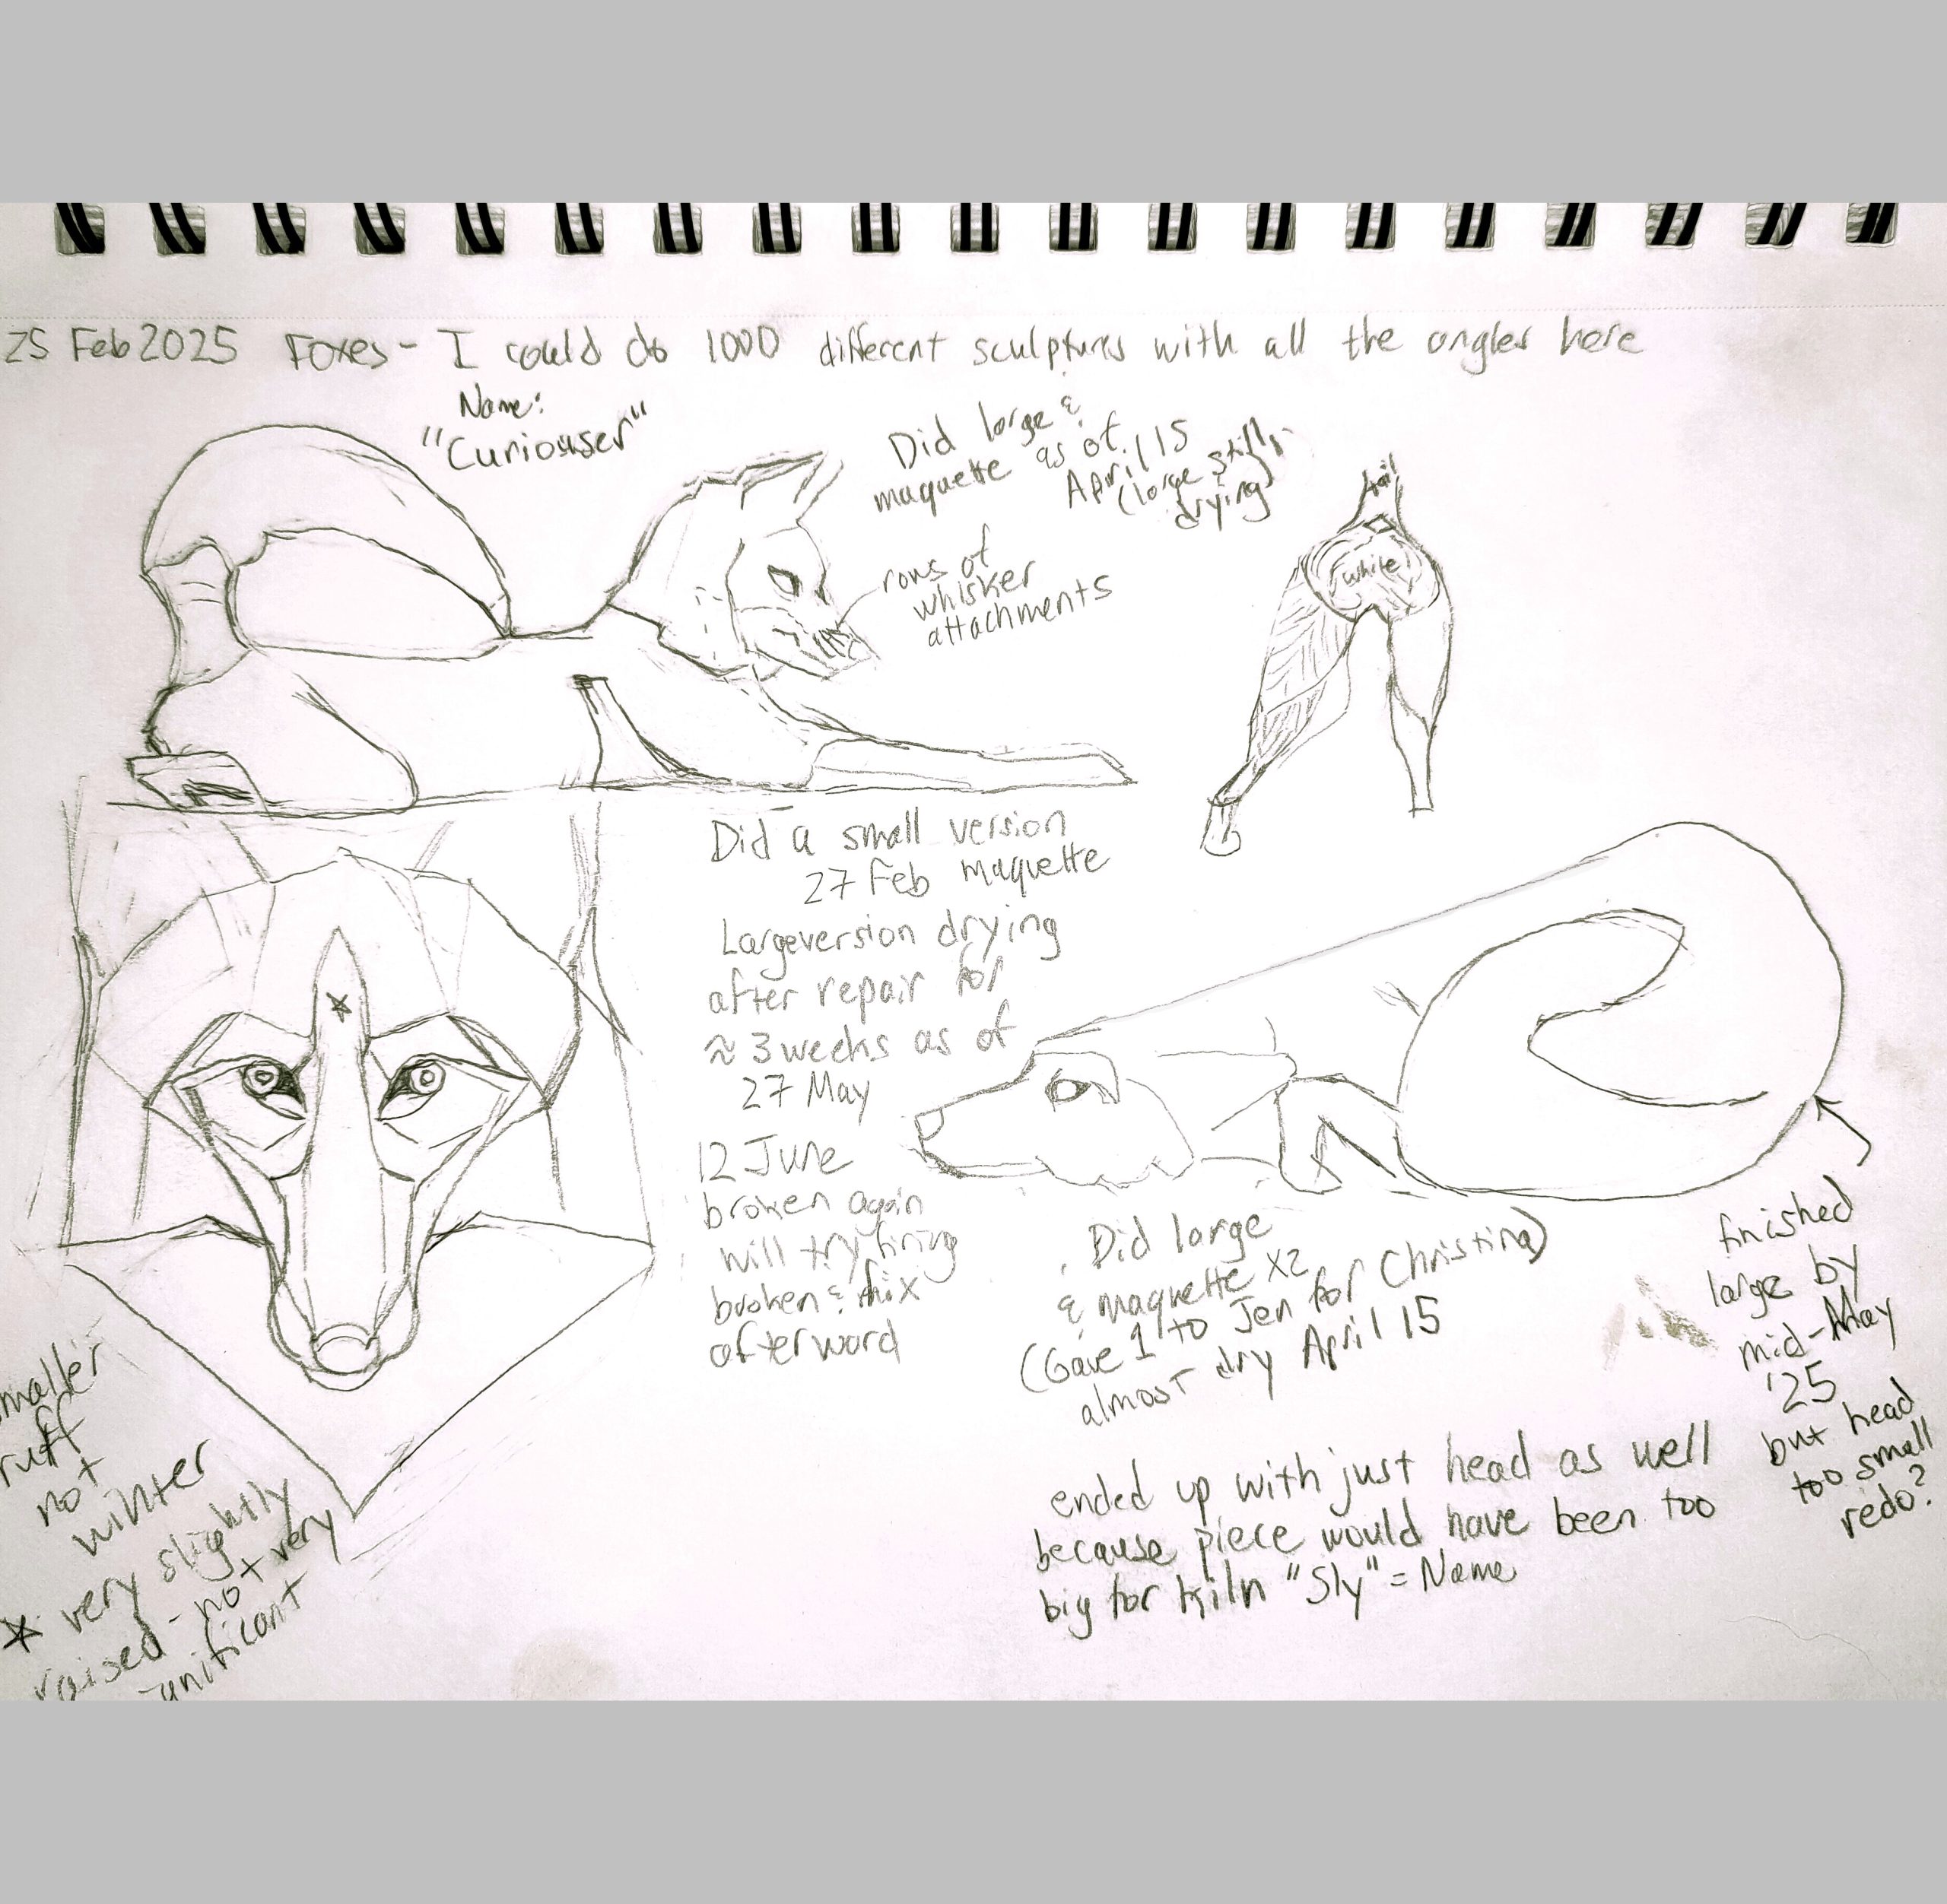 25 Feb 2025 Foxes - I could do 1000 different sculptures with all the angles here
Name:
"Curiouser"
Did large &
maquette as of
April 15
(large still
drying)
rows of
whisker
attachments
tail
white
Did a small version
27 Feb maquette
Large version drying
after repair for
≈ 3 weeks as of
27 May
12 June
broken again
will try firing
broken & fix
afterword
Did large
& maquette x2
(Gave 1 to Jen for Christina)
almost dry April 15
finished
large by
mid-May
'25
but head
too small
redo?
ended up with just head as well
because piece would have been too
big for kiln "Sly" = Name
maller
ruff
not
winter
☆ very slightly
raised - not very
gnificant